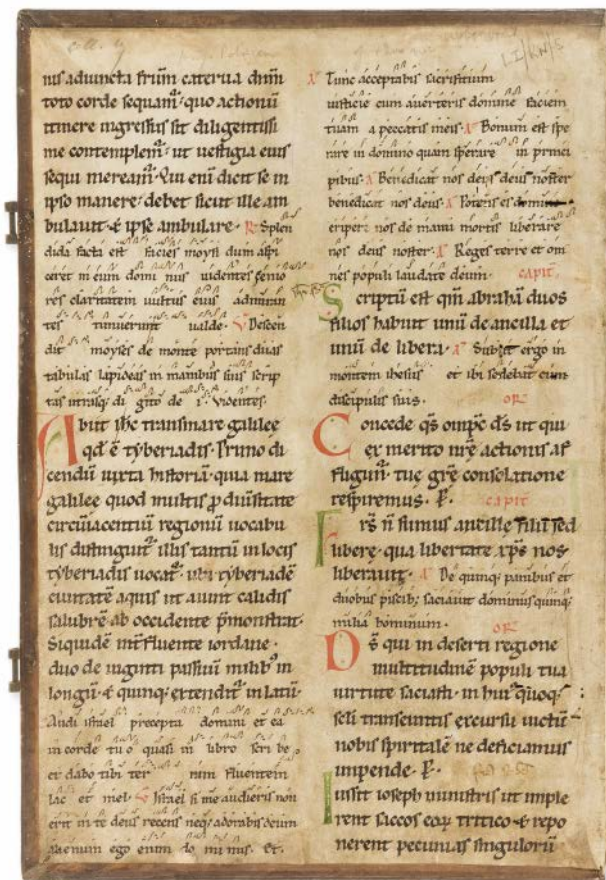 nis adiuncta frm̄ caterua dnm̄
toto corde sequam̄: quo actionū
itinere ingressus sit diligentissi
me contemplem̄: ut uestigia eius
sequi meream̄. Qui eni dicit se in
ipso manere: debet sicut ille am
bulauit & ipse ambulare. R Splen
dida facta est facies moysi dum aspi
ceret in eum domi nus uidentes senio
res claritatem uultus eius admiran
tes timuerunt ualde. V Descen
dit moyses de monte portans duas
tabulas lapideas in manibus suis scrip
tas utrasq; di gito dei. Videntes.
Abiit ihc trans mare galilee
qd' ē tyberiadis. Primo di
cendū iuxta historiā: quia mare
galilee quod multis p diuersitate
circūiacentiū regionū uocabu
lis distinguit̄ illis tantū in locis
tyberiadis uocat̄: ubi tyberiadē
ciuitatē aquis ut aiunt calidis
salubrē ab occidente p̄monstrat.
Siquidē int̄fluente iordane.
duo de uiginti passuū milib; in
longū. & quinq; extendit̄ in latū.
Audi israel precepta domini et ea
in corde tu o quasi in libro scri be.
et dabo tibi ter ram fluentem
lac et mel. V Israel si me audieris non
erit in te deus recens neq; adorabis deum
alienum ego enim do mi nus. Et.
A Tunc acceptabis sacrificium
iusticie cum auerteris domine faciem
tuam a peccatis meis. A Bonum est spe
rare in domino quam sperare in princi
pibus. A Benedicat nos deus deus noster
benedicat nos deus. A Potens es domine
eripere nos de manu mortis liberare
nos deus noster. A Reges terre et om
nes populi laudate deum. CAPIT.
Scriptū est qm̄ abrahā duos
filios habuit unū de ancilla et
unū de libera. A Subiit ergo in
montem ihesus et ibi sedebat cum
discipulis suis. OR
Concede q̄s omp̄c d̄s ut qui
ex merito nr̄e actionis af
fligim̄. tue gr̄e consolatione
respiremus. P. CAPIT
Frs̄ n̄ sumus ancille filii sed
libere. qua libertate xp̄s nos
liberauit. A De quinq; panibus et
duobus piscib; saciauit dominus quinq;
milia hominum. OR
Ds̄ qui in deserti regione
multitudinē populi tua
uirtute saciasti. in hui' quoq;
scl̄i transeuntis excursu uictū
nobis spiritalē ne deficiamus
impende. P.
Iussit ioseph ministris ut imple
rent saccos eoꝝ tritico & repo
nerent pecunias singulorū